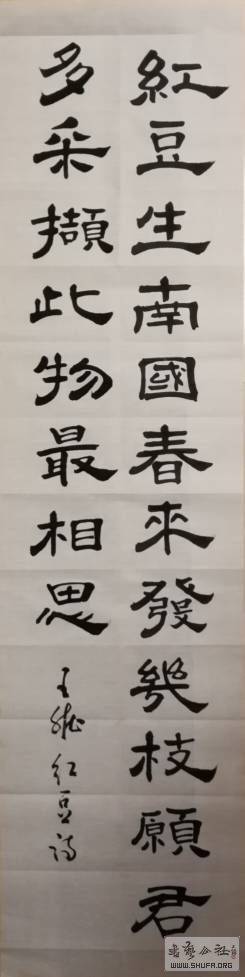 紅豆生南國春來發幾枝願君
多采擷此物最相思
王維紅豆詩
WWW.SHUFA.ORG